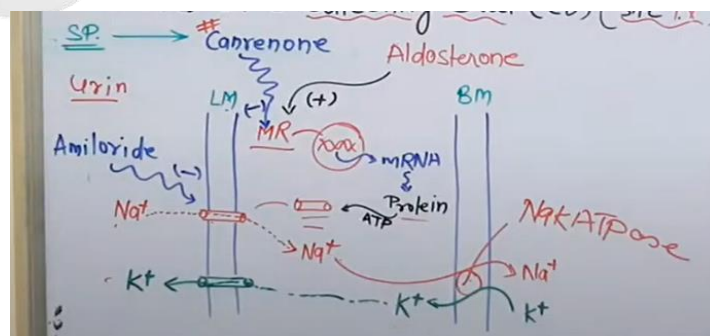 SP. → #Canrenone
Aldosterone
Urin
LM
(-)
(+)
BM
MR
xxxx
mRNA
Amiloride
(-)
Protein
ATP
Na+
Na+
NaKATPase
Na+
K+
K+
K+